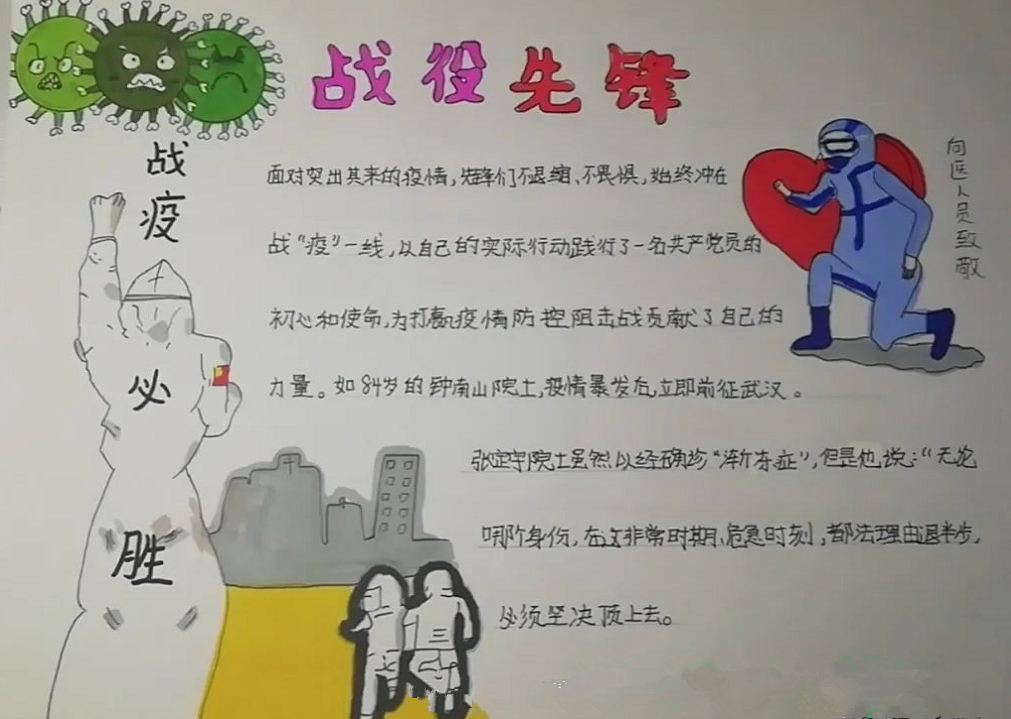 战役先锋
战
疫
必
胜
向医人员致敬
面对突出其来的疫情,先锋们不退缩、不畏惧,始终冲在
战“疫”一线,以自己的实际行动践行了一名共产党员的
初心和使命,为打赢疫情防控阻击战贡献了自己的
力量。如84岁的钟南山院士,疫情暴发后,立即前征武汉。
张定宇院士虽然以经确诊“渐冻症”,但是他说:“无论
哪阶身份,在这非常时期、危急时刻,都法理由退半步,
必须坚决顶上去。